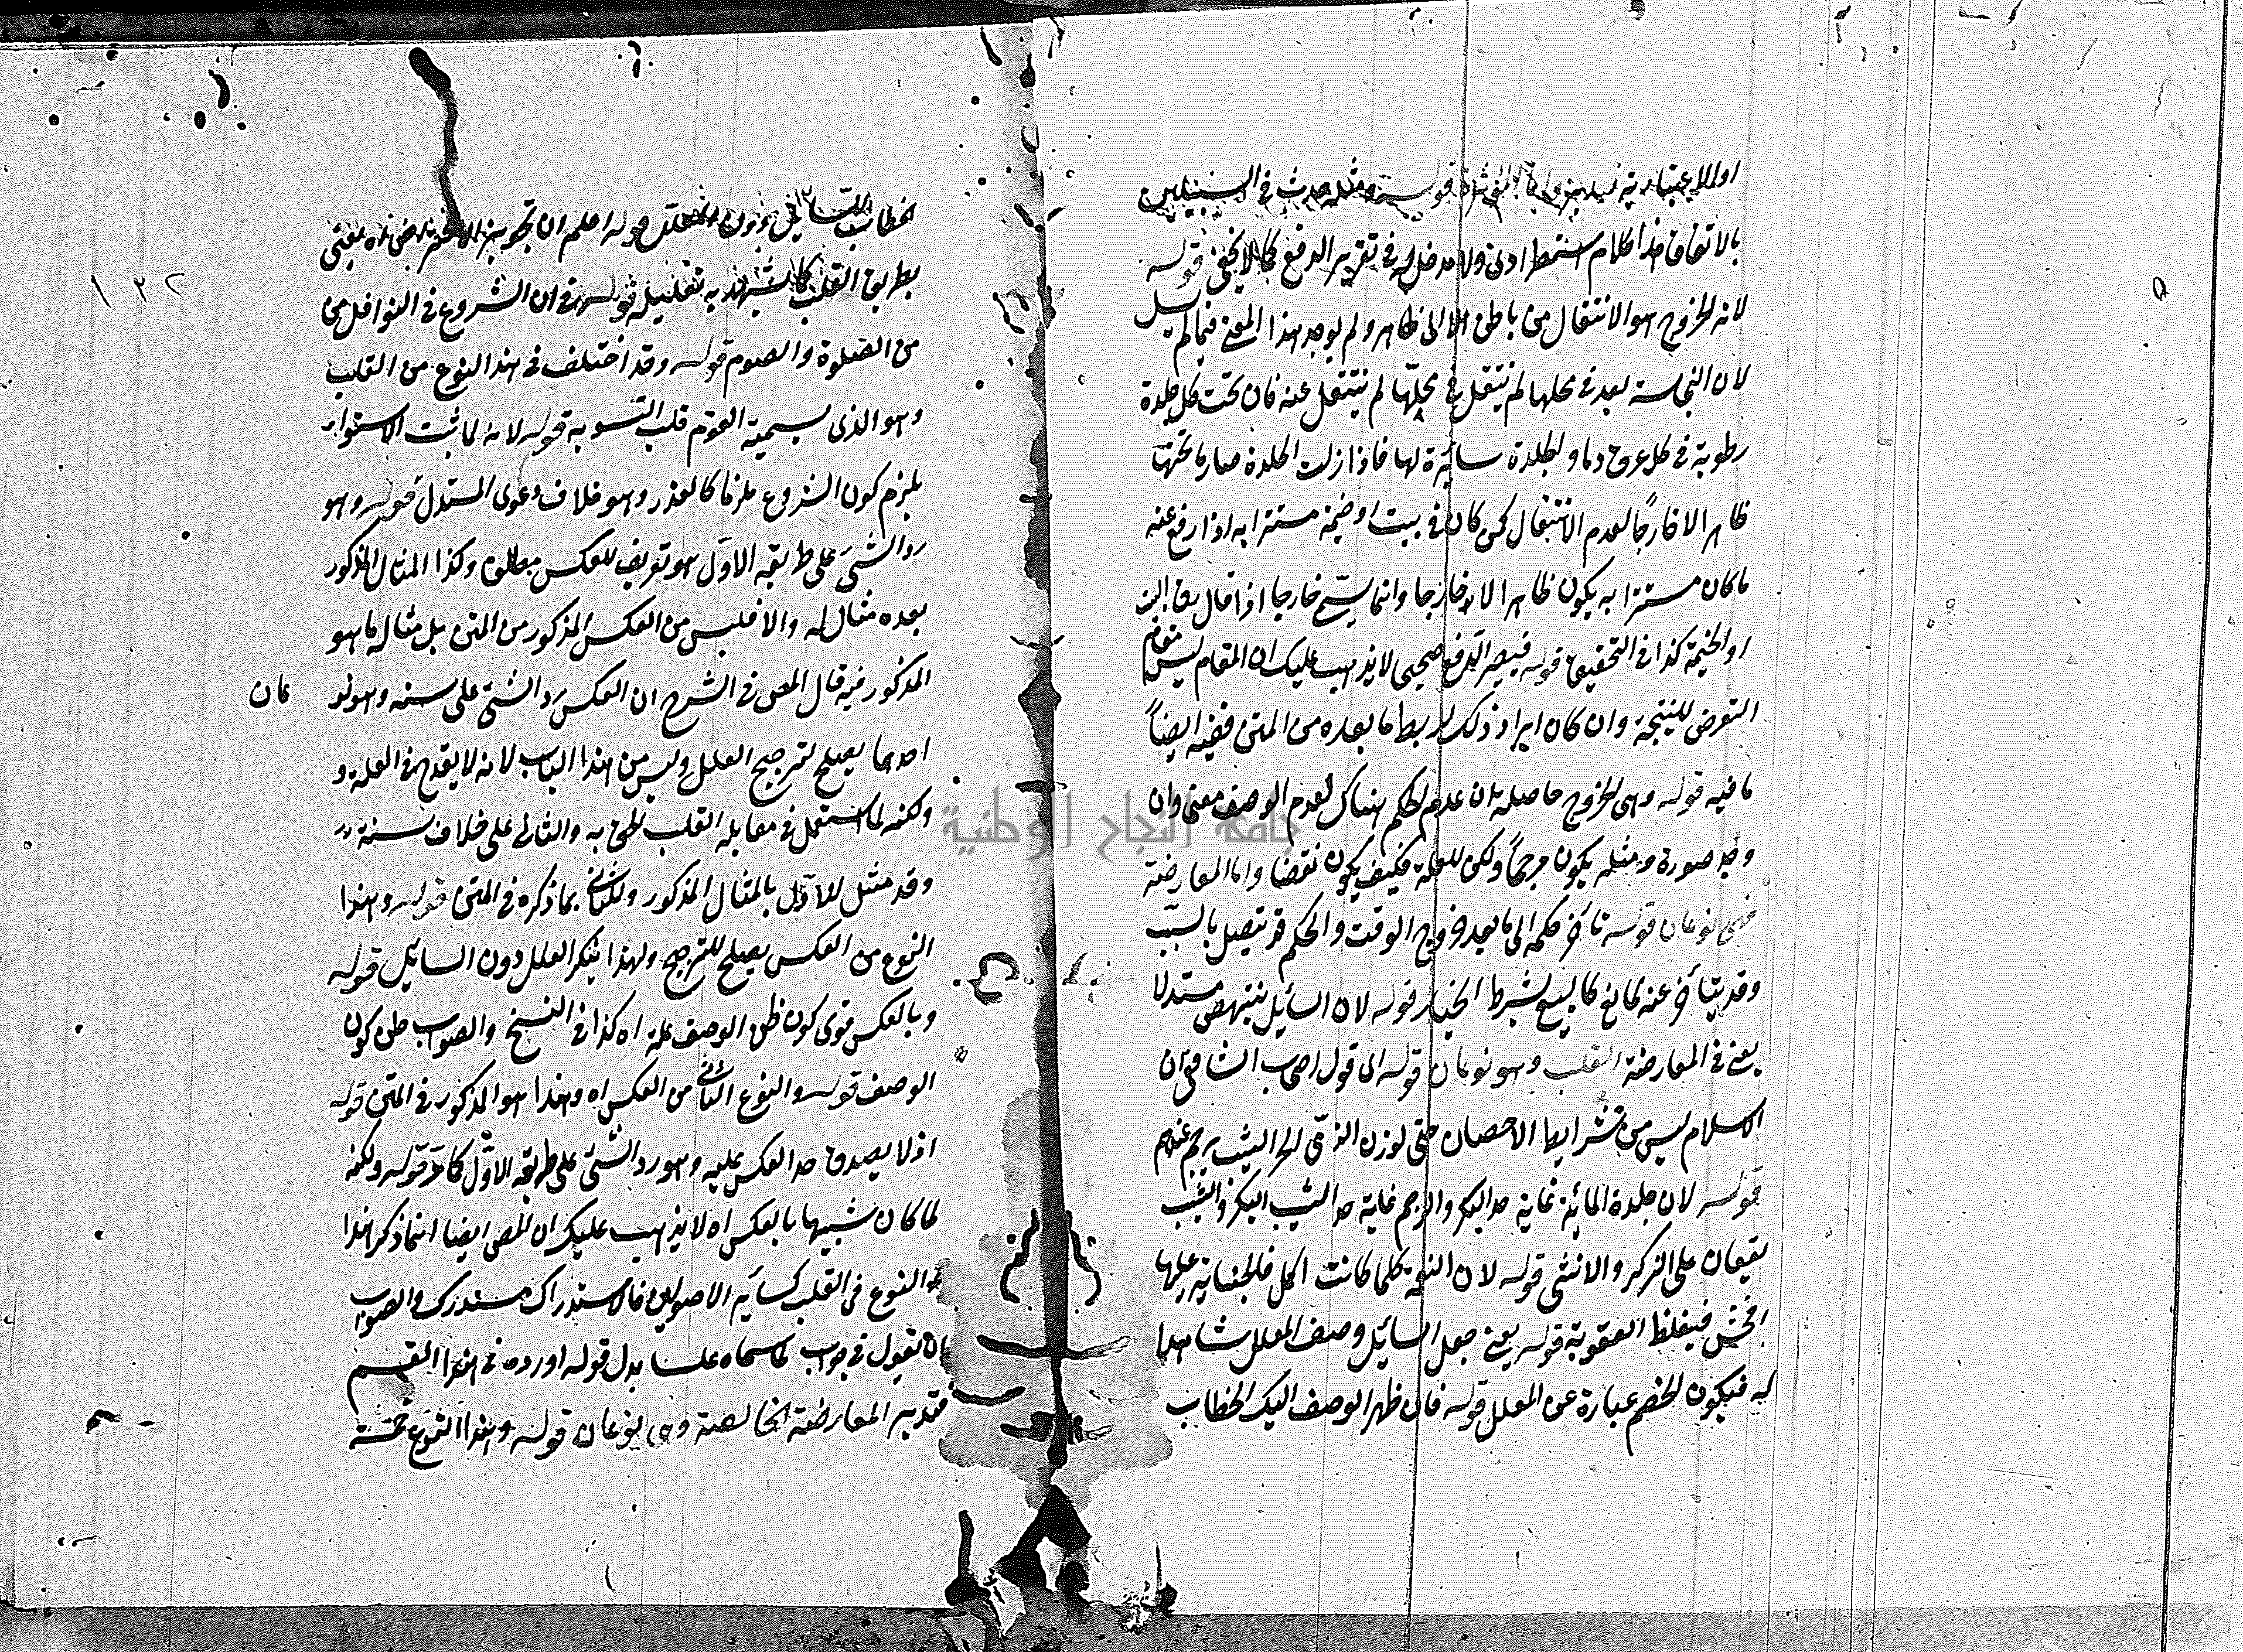 بالاتفاق هذا كلام استطرادى ولا مدخل له فى تقرير الدفع كما لا يخفى قوله
لانه الخروج هو الانتقال من باطن الى ظاهر ولم يوجد هذا المعنى فيما لم يسل
لان النجاسة بعد فى محلها لم ينتقل فى محلها لم ينتقل عنه فان تحت كل جلدة
رطوبة فى كل عروق دما والجلدة ساترة لها فاذا زالت الجلدة صار ما تحتها
ظاهرا لا خارجًا لعدم الانتقال كمن كان فى بيت او خيمة مستترا به اذا رفع عنه
ما كان مستترا به يكون ظاهرا لا خارجا وانما يسمى خارجا اذا فارق البيت
او الخيمة كذا فى التحقيق قوله فيصير الدفع لا يذهب عليك ان المقام ليس مقام
التعرض للنتيجة وان كان ايراد ذلك لربط ما بعده من المتن ففيه ايضاً
ما فيه قوله وهى الخروج حاصله ان عدم الحكم هناك لعدم الوصف معنى وان
وجد صورة ومثله يكون مرجحاً ولكن للعلة فكيف يكون نقضا واما المعارضة
فهى نوعان قوله تأخر حكمه الى ما بعد خروج الوقت والحكم قد يتصل بالسبب
وقد يتأخر عنه لمانع كالبيع بشرط الخيار قوله لان السائل ينتهض مستدلا
يعنى فى المعارضة القلب وهو نوعان قوله اى قول اصحاب الشافعى ان
الاسلام ليس من شرايط الاحصان حتى لو زنى الذمى الحر الثيب يرجم عندهم
قوله لان جلدة المائة غاية حد البكر والرجم غاية حد الثيب البكر والثيب
يقعان على الذكر والانثى قوله لان النعمة كلما كانت اكمل فالجناية عليها
افحش فيغلظ العقوبة قوله يعنى جعل السائل وصف المعلل شاهدا
له فيكون الخصم عبارة عن المعلل قوله فان ظهر الوصف اليك الخطاب
١٣٢
من الصلوة والصوم قوله وقد اختلف فى هذا النوع من القلب
وهو الذى يسميه القوم قلب التسوية قوله لانه لما ثبت الاستواء
يلزم كون الشروع ملزما كالنذر وهو خلاف دعوى المستدل قوله وهو
رد الشئ على طريقه الاول هو تعريف للعكس مطلقا وكذا المثال المذكور
بعده مثال له والا فليس من العكس المذكور من المتن بل مثال ما هو
المذكور فيه قال المص فى الشرح ان العكس رد الشئ على سننه وهو نو
عان
احدهما يصلح لترجيح العلل وليس من هذا الباب لانه لا يقدح فى العلة و
ولكنه لما استعمل فى مقابلة القلب الحق به والثانى على خلاف سننه
وقد مثل للاول بالمثال المذكور وللثانى بما ذكره فى المتن قوله وهذا
النوع من العكس يصلح للترجيح ولهذا المعلل دون السائل قوله
وبالعكس قوى كون ظن الوصف علة اه كذا فى النسخ والصواب ظن كون
الوصف قوله والنوع الثانى من العكس اه وهذا هو المذكور فى المتن قوله
اذ لا يصدق حد العكس عليه وهو رد الشئ على طريقه الاول كما مر قوله ولكنه
لما كان شبيها بالعكس اه لا يذهب عليك ان المص ايضا انما ذكر هذا
النوع فى القلب كسائر الاصوليين فالاستدراك مستدرك والصواب
ان تقول فى جواب لما سماه عكسا بدل قوله اورده فى هذا القسم
فتدبر المعارضة الخالصة وهى نوعان قوله وهذا النوع خمسة
جامعة النجاح الوطنية